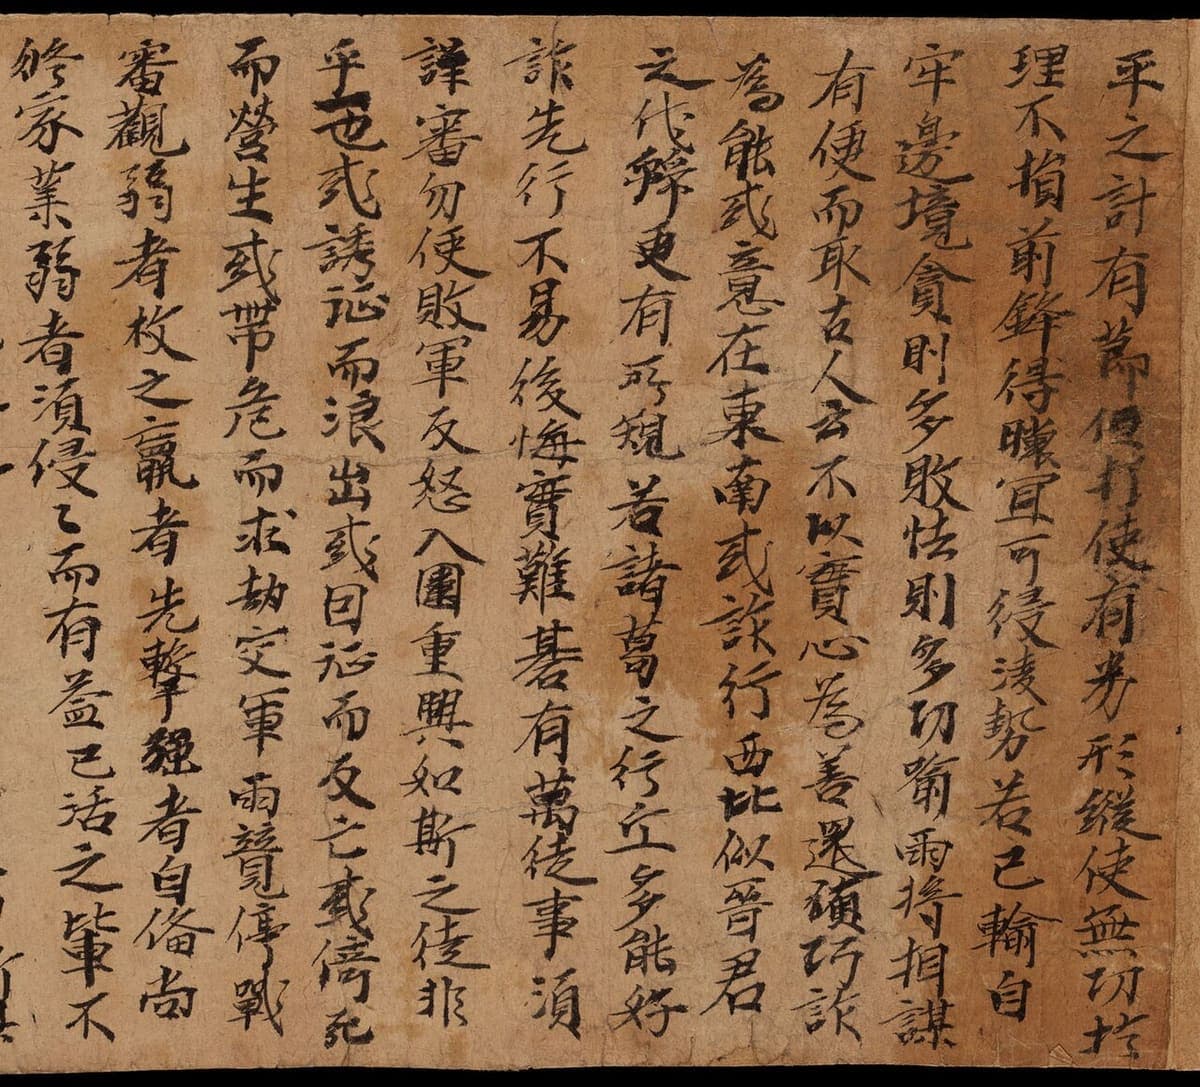 平之計有節但打使有劵形縱使無功於
理不損前鋒得暕宜可侵淩勢若已輸自
牢邊境貪則多敗怯則多功喻兩將相謀
有便而取古人云不以實心為善還須巧詐
為能或意在東南或詐行西北似晉君
之伐虢更有所規若諸葛之行丘多能好
詐先行不易後悔實難碁有萬徒事須
謹審勿使敗軍反怒入圍重興如斯之徒非
乎一也或誘征而浪出或因征而反亡或倚死
而營生或帶危而求劫交軍兩競停戰
審觀弱者枚之羸者先擊強者自俻尚
修家業弱者須侵〻而有益已活之輩不